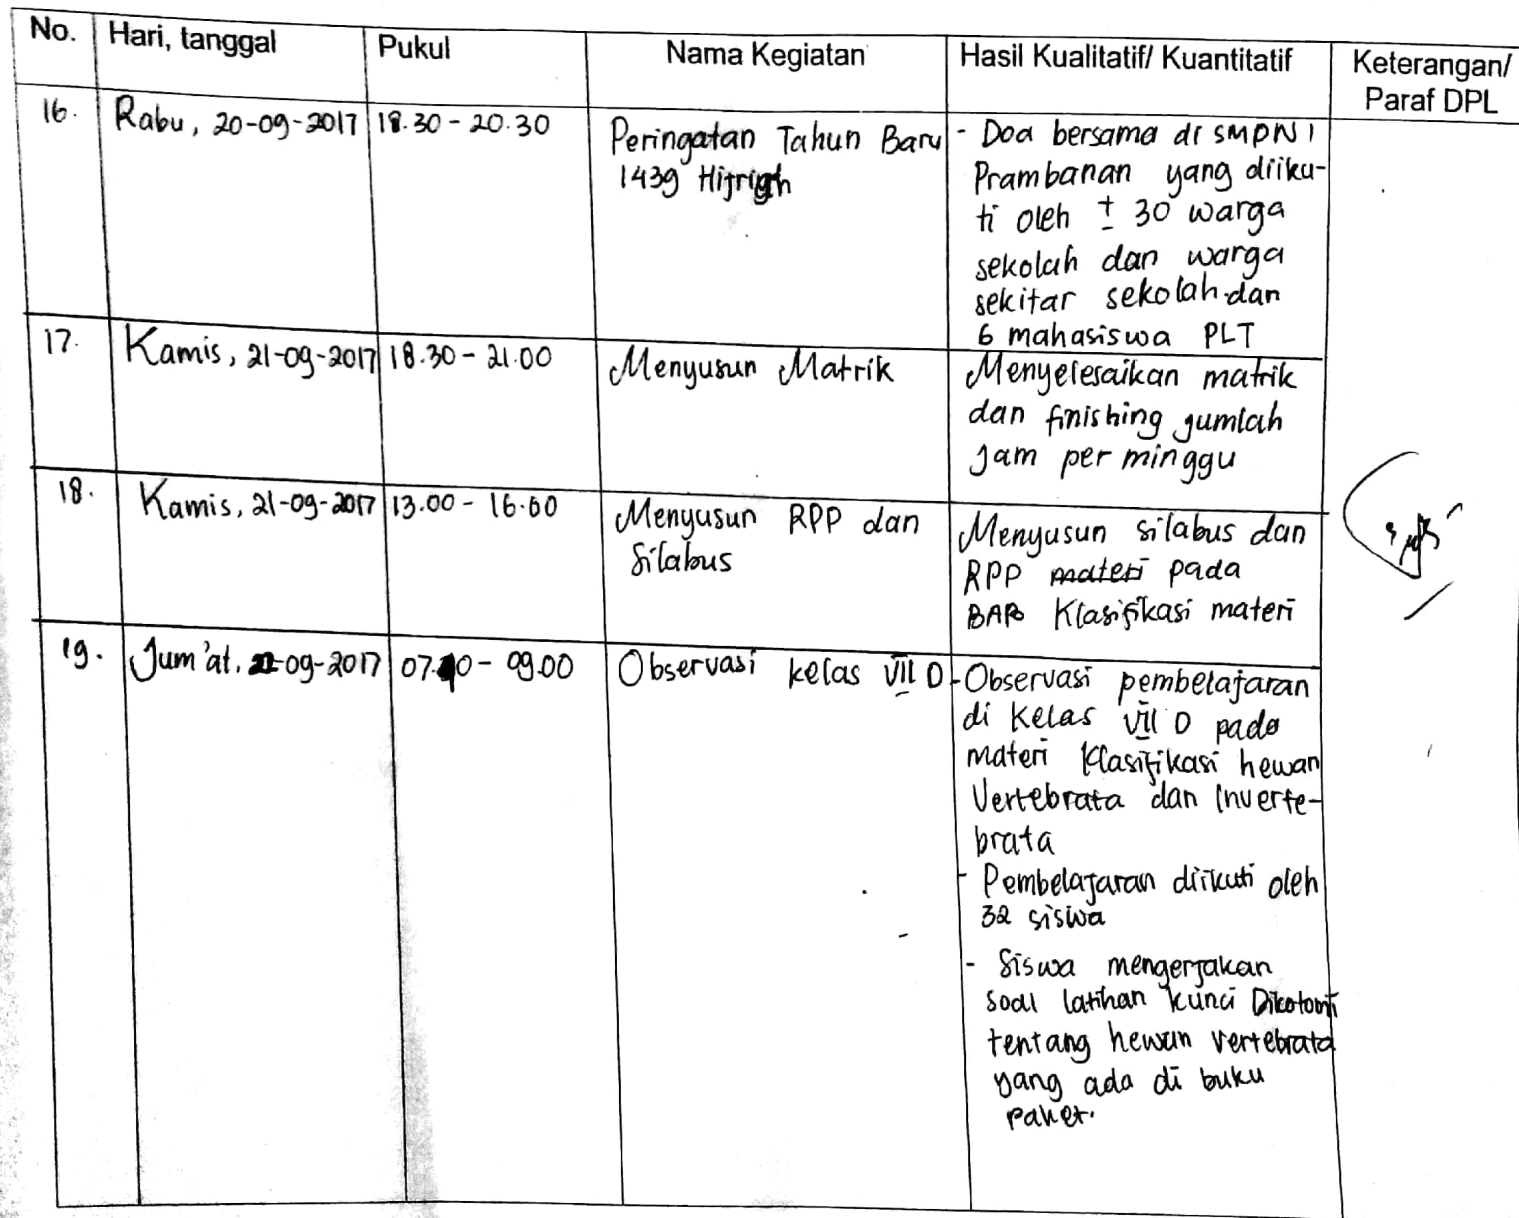 No. Hari, tanggal Pukul Nama Kegiatan Hasil Kualitatif/ Kuantitatif Keterangan/
Paraf DPL
16. Rabu, 20-09-2017 18.30 - 20.30 Peringatan Tahun Baru - Doa bersama di SMPN 1
1439 Hijriah Prambanan yang diiku-
ti oleh ± 30 warga
sekolah dan warga
sekitar sekolah dan
6 mahasiswa PLT
17. Kamis, 21-09-2017 18.30 - 21.00 Menyusun Matrik Menyelesaikan matrik
dan finishing jumlah
jam per minggu
18. Kamis, 21-09-2017 13.00 - 16.00 Menyusun RPP dan Menyusun silabus dan
Silabus RPP materi pada
BAB Klasifikasi materi
19. Jum'at, 22-09-2017 07.40 - 09.00 Observasi kelas VII D - Observasi pembelajaran
di Kelas VII D pada
materi Klasifikasi hewan
Vertebrata dan Inverte-
brata
- Pembelajaran diikuti oleh
32 siswa
- Siswa mengerjakan
soal latihan kunci Dikotomi
tentang hewan vertebrata
yang ada di buku
paket.